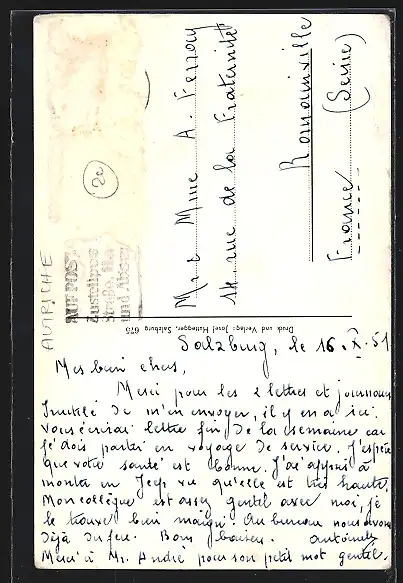 Mr & Mme A. Ferray
14 rue de la Fraternité
Romainville
(Seine)
France
2e
AUTRICHE
AUF POST
Zustellpost
und Absen
Druck und Verlag: Josef Huttegger, Salzburg 675
Salzburg, le 16.X.51
Mes bien chers,
Merci pour les 2 lettres et journaux
Inutile de m'en envoyer, il y en a ici.
Vous écrirai lettre fin de la semaine car
je dois partir en voyage de service. J'espère
que votre santé est bonne. J'ai appris à
monter en Jeep vu qu'elle est très haute.
Mon collègue est assez gentil avec moi, je
le trouve bien maigri. Au bureau nous avons
déjà du feu. Bons baisers. Antoinette
Merci à Mr. André pour son petit mot gentil.